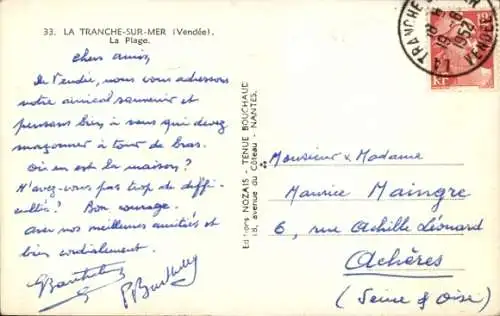 33. LA TRANCHE-SUR-MER (Vendée).
La Plage.
chers amis,
De Vendée, nous vous adressons
notre amical souvenir et
pensons bien à vous qui devez
maçonner à tour de bras.
Où en est la maison?
N'avez-vous pas trop de diffi-
cultés? Bon courage.
avec nos meilleures amitiés et
bien cordialement.
Editions NOZAIS - TENUE BOUCHAUD
18, avenue du Côteau - NANTES.
LA TRANCHE
1952
VENDÉE
Monsieur & Madame
Maurice Maingre
6, rue Achille Léonard
Achères
(Seine & Oise)